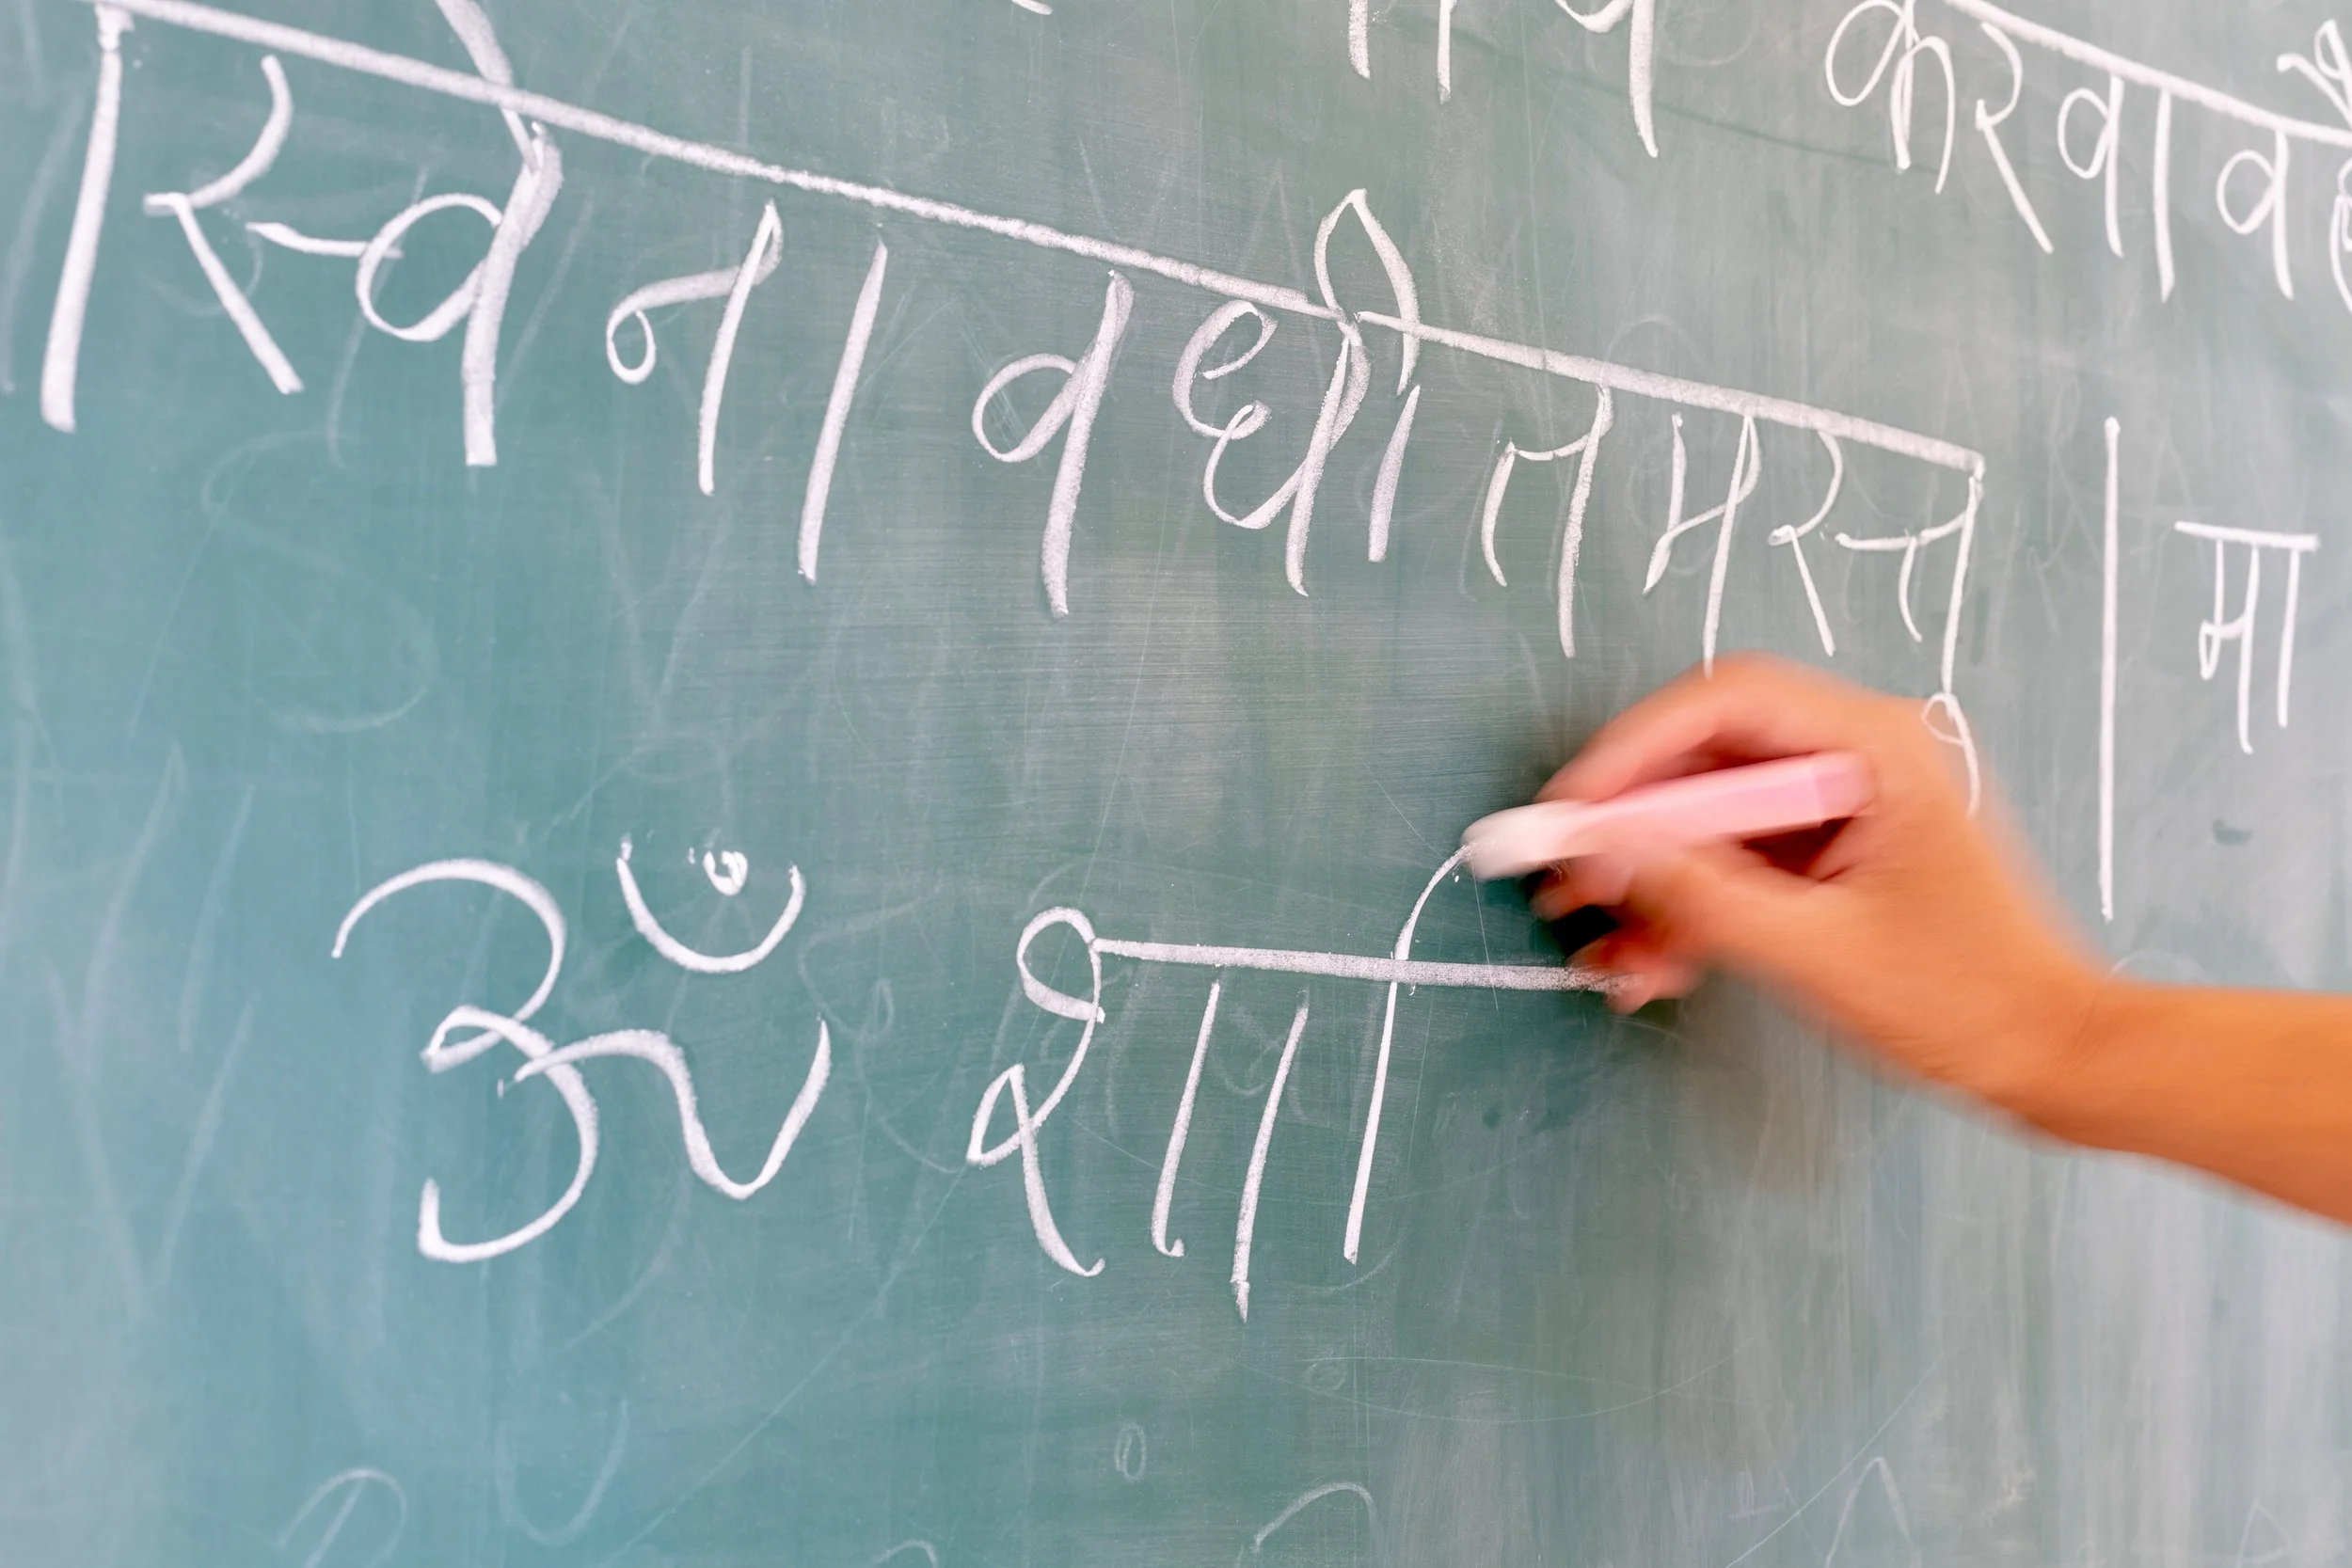 करवावहै
स्विनावधीतमस्तु । मा
ॐ शाि